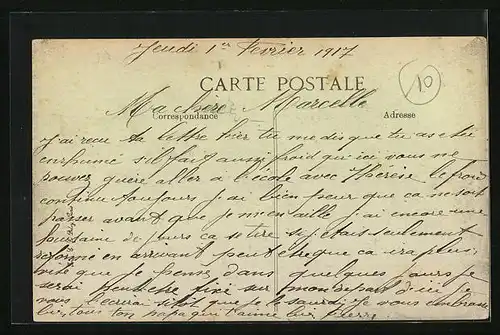 Jeudi 1er Fevrier 1917
CARTE POSTALE
10
Ma chère Marcelle
Correspondance
Adresse
J'ai reçu ta lettre hier tu me dis que tu as été
enrhumé s'il fait aussi froid qu'ici vous ne
pouvez guère aller à l'école avec Thérèse le froid
continu toujours j'ai bien peur que ça ne soit
passer avant que je m'en aille j'ai encore une
quinzaine de jours ça se tire si j'étais seulement
réformé en arrivant peut etre que ça ira plus
vite que je pense dans quelques jours je
serai peut etre fixé sur mon départ d'ici je
vous l'écrirai sitôt que je le saurai Je vous embrasse
tous ton papa qui t'aime bien Pierre